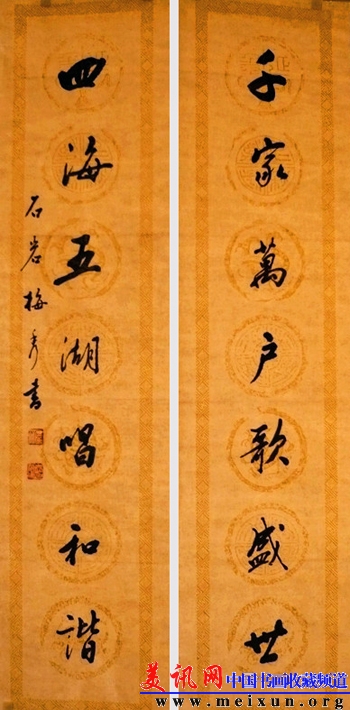 千家萬户歌盛世
四海五湖唱和諧
石岩梅秀書
美讯网 中国书画收藏频道
www.meixun.org